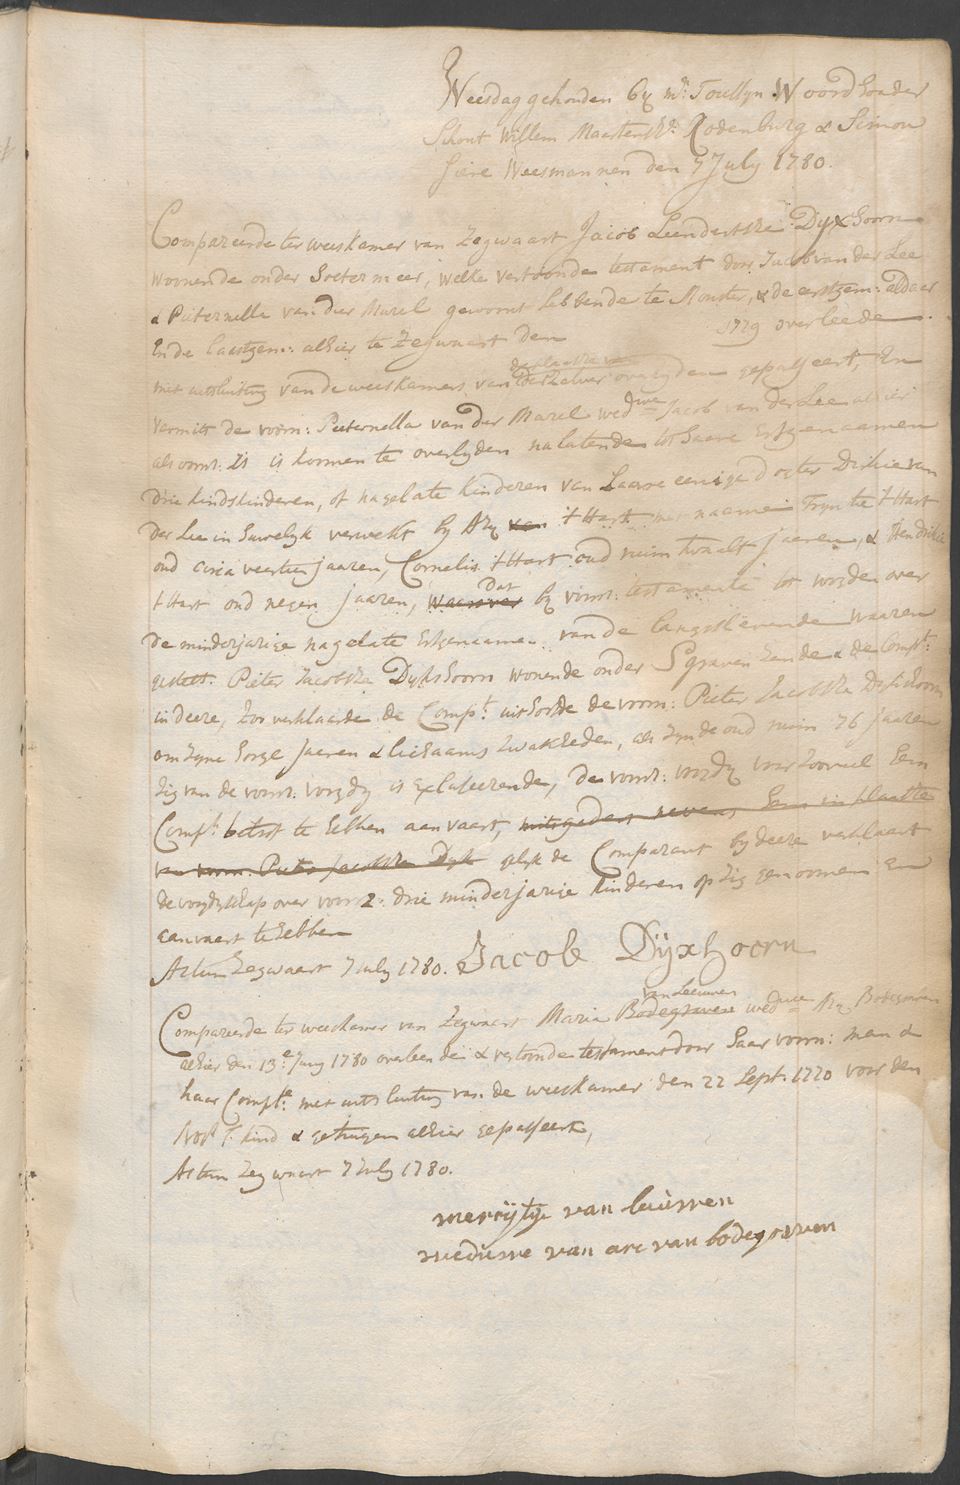 Weesdag gehouden by mr. Joullyn Woordhouder
Schout Willem Maartensz. Rodenburg & Simon
Siere Weesmannen den 7 July 1780.
Compareerde ter weeskamer van Zegwaart Jacob Leendertsze Dyxhoorn
woonende onder Soetermeer, welke vertoonde testament door Jacob van der Lee
& Pieternella van der Marel gewoont hebbende te Monster, & de eerstgem: aldaer
En de laastgem: alhier te Zegwaart den 1779 overleede
met uitsluiting van de weeskamers van der plaatse van derselver overlyden gepasseert, En
vermits de voorn: Pieternella van der Marel wedwe Jacob van der Lee alhier
als voors: is is koomen te overlyden nalatende tot haare Erfgenaamen
drie kindskinderen, of nagelate kinderen van haare eenige dogter Dirkie van
der Lee in huwelyk verwekt by Ary van 't Hart met naame Tryntie 't Hart
oud circa veertien jaaren, Cornelis 't Hart oud ruim twaalf jaeren, & Hendrikie
't Hart oud negen jaaren, waarover Dat by voors: testamente tot vogden over
de minderjarige nagelate Erfgenaamen van de langstlevende waaren
gestelt Pieter Jacobsze Dyxhoorn wonende onder Sgravensande & de Compt.
in deese, Zoo verklaarde de Compt. uit hoofde de voorn: Pieter Jacobsze Dyxhoorn
om zyne hooge jaeren & lichaams zwakheden, als zynde oud ruim 76 jaaren
Zig van de voors: vogdy is Excuseerende, De voors: vogdy voor zooveel Hem
Compt. betreft te hebben aanvaart, mitsgaders nevens Hem in plaatse
van voorn. Pieter Jacobsze Dyk gelyk de Comparant by deese verklaart
de vogdyschap over voorz: drie minderjarige kinderen op zig genoomen En
aanvaert te hebben
Actum Zegwaart 7 July 1780. Jacob Dÿxhoorn
Compareerde ter weeskamer van Zegwaart Maria Bodegraven van Leeuwen wedwe Ary Bodegraven
alhier den 13e Juny 1780 overleeden & vertoonde testament door haar voorn: man &
haar Compte. met uitsluiting van de weeskamer den 22 Sept. 1770 voor den
Nots. 't kind & getuigen alhier gepasseert,
Actum Zegwaart 7 July 1780.
merrijtije van leuwen
weduwe van are van bodegraven